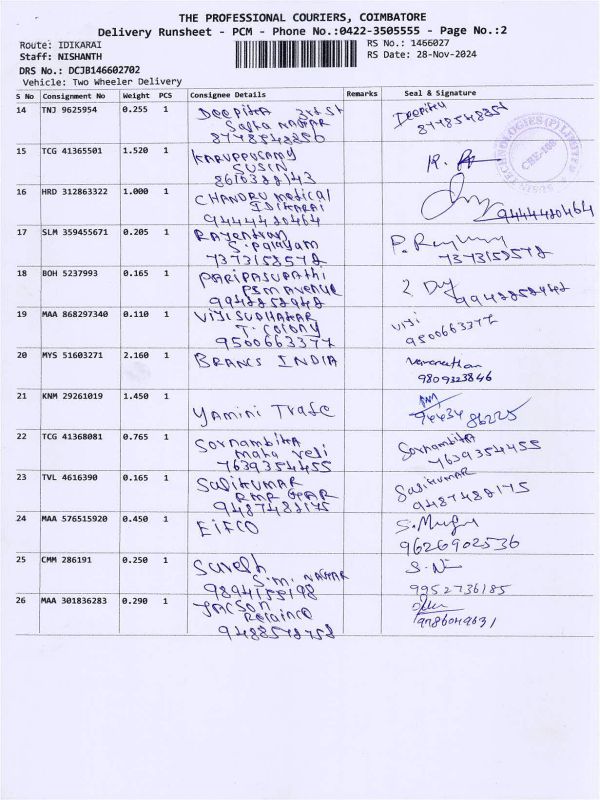 THE PROFESSIONAL COURIERS, COIMBATORE
Delivery Runsheet - PCM - Phone No.:0422-3505555 - Page No.:2
Route: IDIKARAI
RS No.: 1466027
Staff: NISHANTH
RS Date: 28-Nov-2024
DRS No.: DCJB146602702
Vehicle: Two Wheeler Delivery
S No Consignment No Weight PCS Consignee Details Remarks Seal & Signature
14 TNJ 9625954 0.255 1 Deepika 3rd St Deepika
Safta NAGAR
8778548356
15 TCG 41365501 1.520 1 KARUPPUSAMY
SUSIN
8610388143
16 HRD 312863322 1.000 1 CHANDRU medical
IDIKARAI
9444420464 9444420464
17 SLM 359455671 0.205 1 Rajendran
S. Palayam
7373158572 7373158572
18 BOH 5237993 0.165 1 PARIPASUPAthi
PSM Avenue
9942852942 9942852942
19 MAA 868297340 0.110 1 VIJI SUDHAKAR viji
T. Colony
9500663377 9500663377
20 MYS 51603271 2.160 1 BRANCS INDIA
9809323846
21 KNM 29261019 1.450 1
Yamini Trade 94434 86225
22 TCG 41368081 0.765 1 Sornambika Sornambika
maha veli
7639354455 7639354455
23 TVL 4616390 0.165 1 SASIKUMAR Sasikumar
RMR Gear
9487482175 9487482175
24 MAA 576515920 0.450 1 EIFCO
9626902536
25 CMM 286191 0.250 1 Suresh
S.M. NAGAR
9894155198 9952736185
26 MAA 301836283 0.290 1 JACSON
9786049631
9488578758